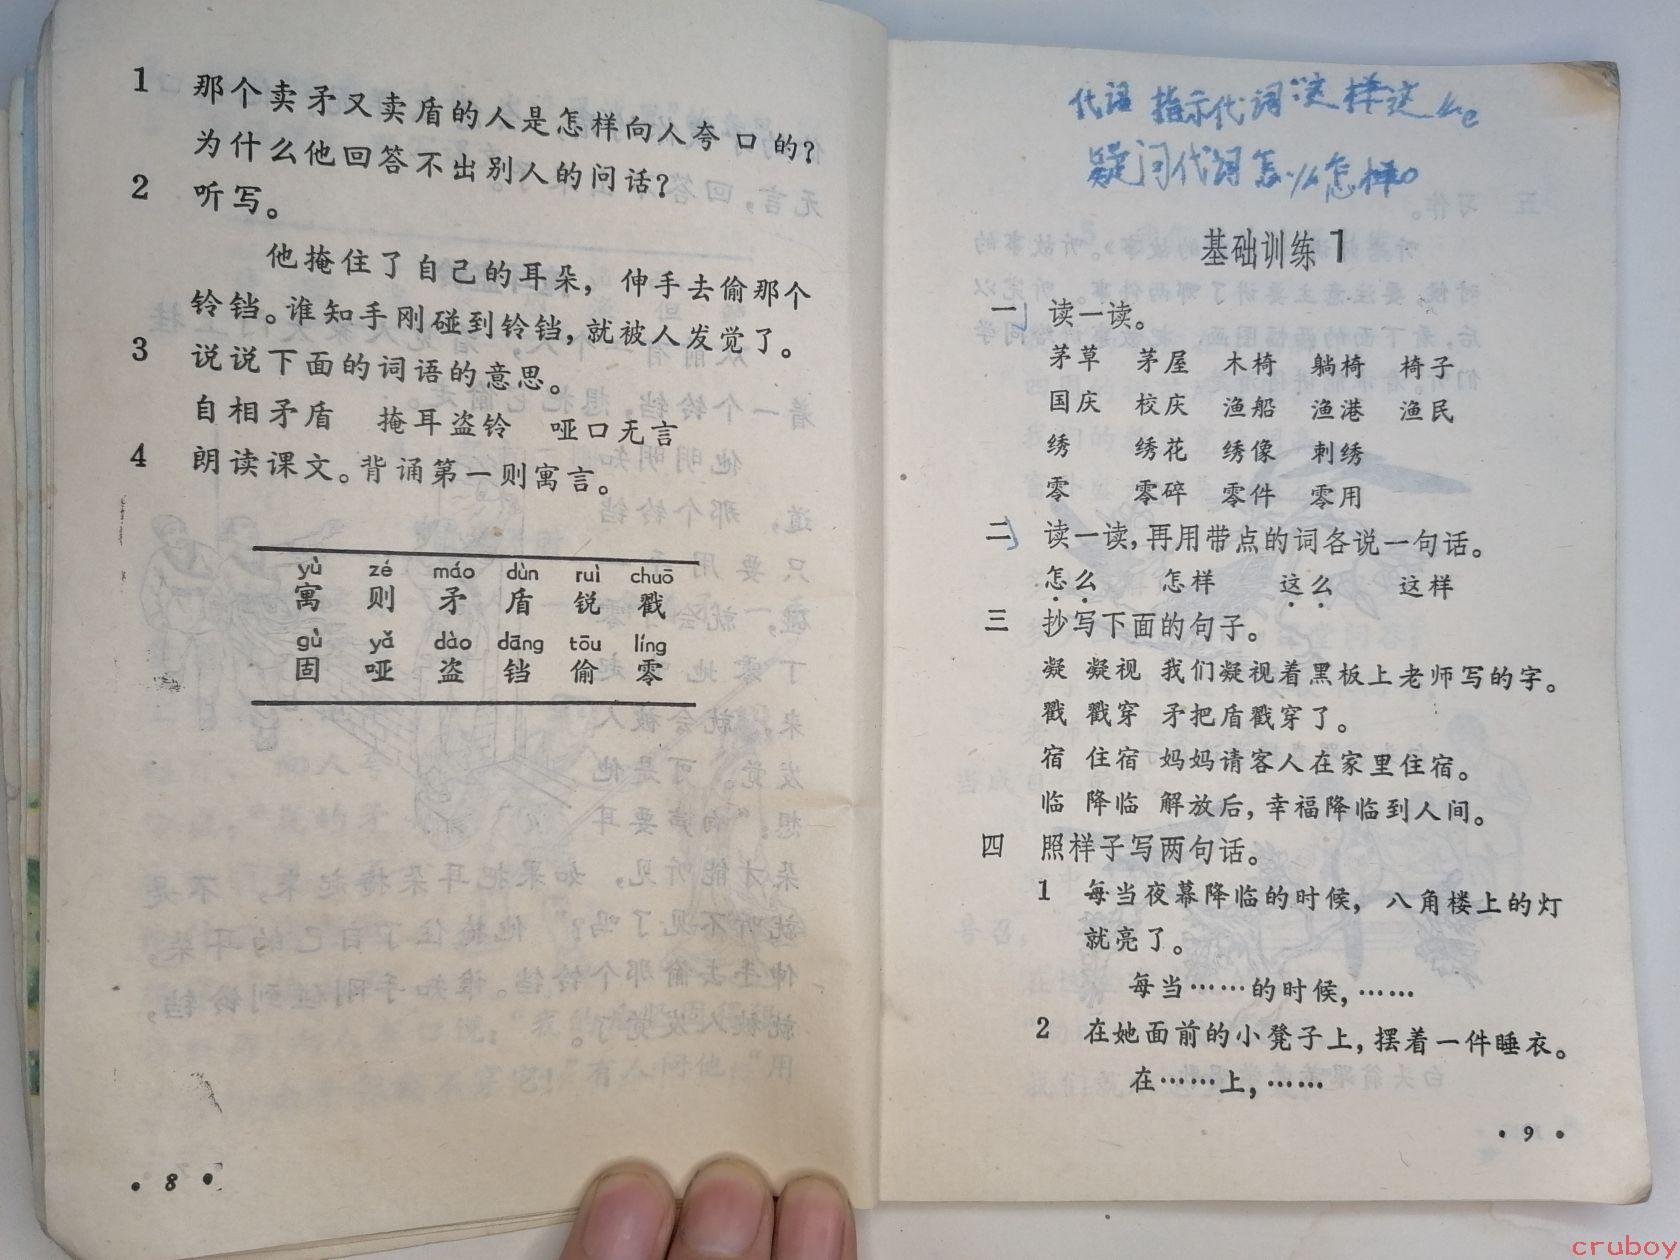 1 那个卖矛又卖盾的人是怎样向人夸口的?
为什么他回答不出别人的问话?
2 听写。
他掩住了自己的耳朵, 伸手去偷那个
铃铛。谁知手刚碰到铃铛,就被人发觉了。
3 说说下面的词语的意思。
自相矛盾 掩耳盗铃 哑口无言
4 朗读课文。背诵第一则寓言。
yù zé máo dùn ruì chuō
寓 则 矛 盾 锐 戳
gù yǎ dào dāng tōu líng
固 哑 盗 铛 偷 零
• 8 •
代词 指示代词 这样这么
疑问代词 怎么怎样。
基础训练1
一 读一读。
茅草 茅屋 木椅 躺椅 椅子
国庆 校庆 渔船 渔港 渔民
绣 绣花 绣像 刺绣
零 零碎 零件 零用
二 读一读,再用带点的词各说一句话。
怎么 怎样 这么 这样
三 抄写下面的句子。
凝 凝视 我们凝视着黑板上老师写的字。
戳 戳穿 矛把盾戳穿了。
宿 住宿 妈妈请客人在家里住宿。
临 降临 解放后,幸福降临到人间。
四 照样子写两句话。
1 每当夜幕降临的时候, 八角楼上的灯
就亮了。
每当……的时候,……
2 在她面前的小凳子上,摆着一件睡衣。
在……上,……
• 9 •
cruboy